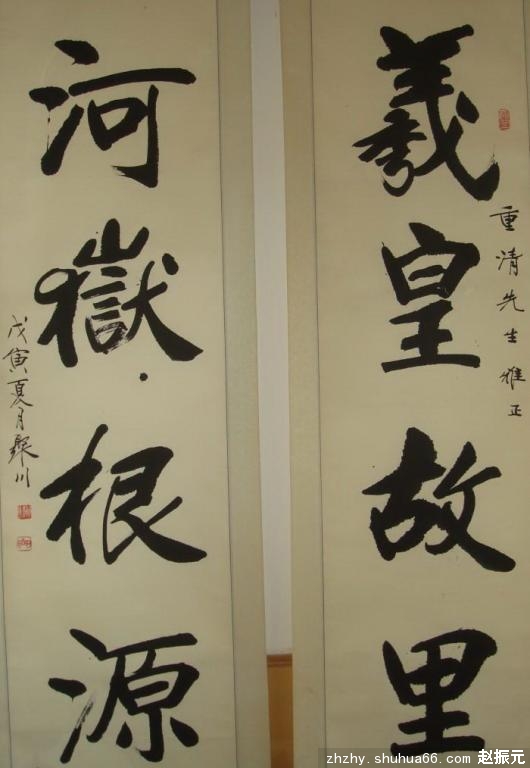 羲皇故里
重清先生雅正
河嶽根源
戊寅夏月聚川
zhzhy.shuhua66.com 赵振元